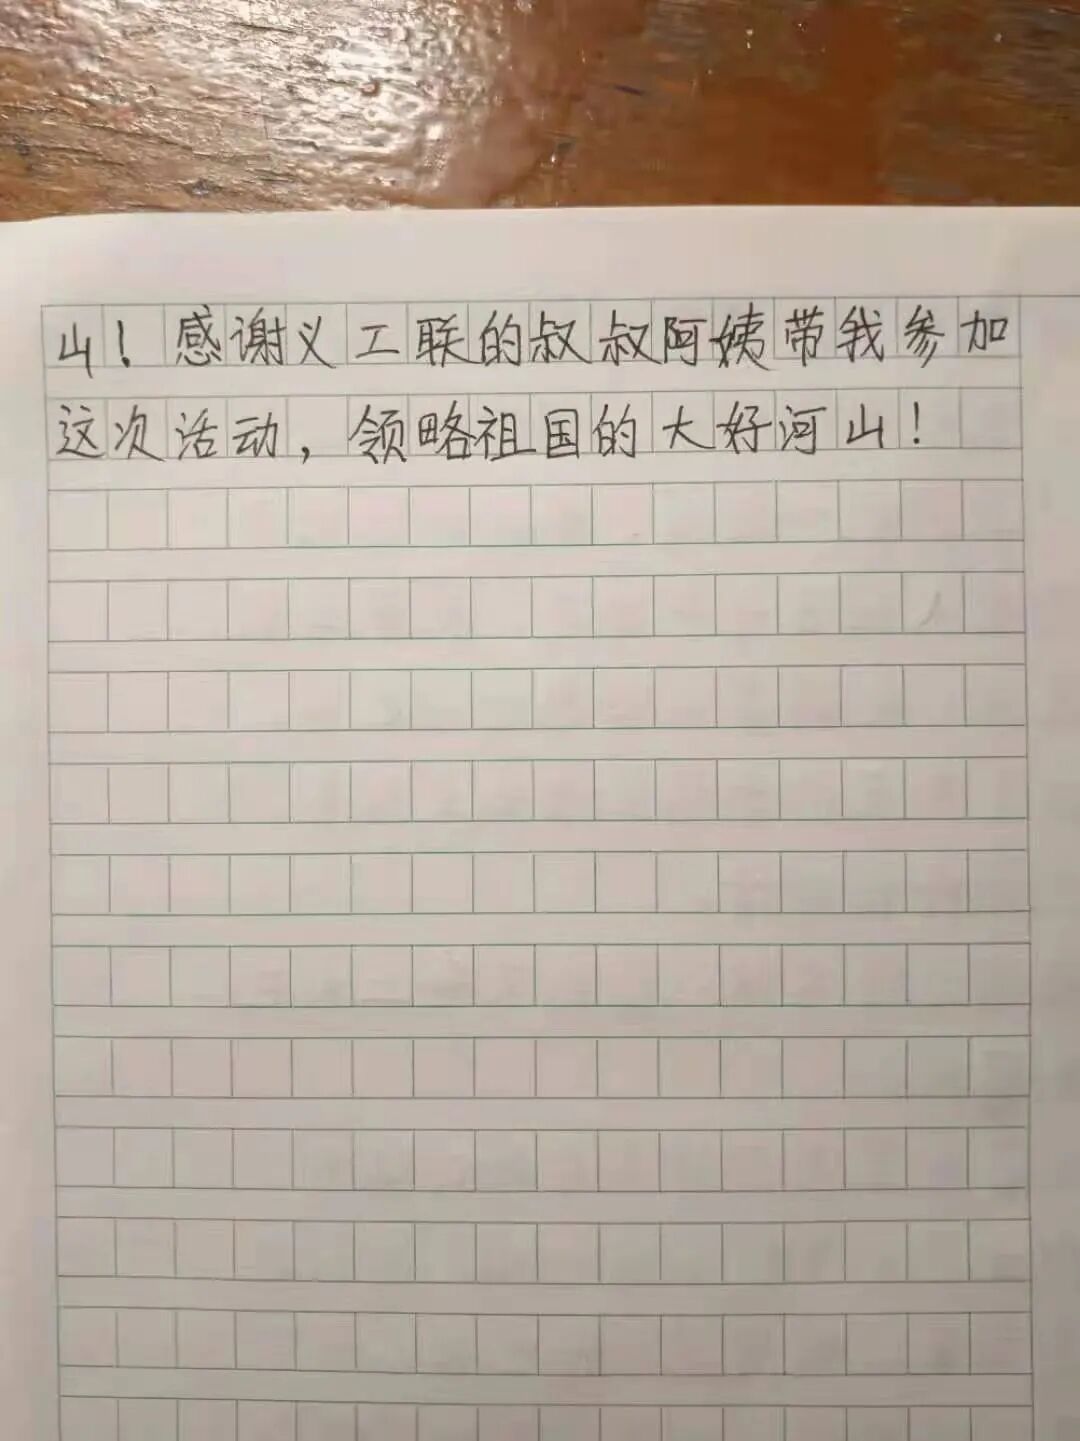 山！感谢义工联的叔叔阿姨带我参加
这次活动，领略祖国的大好河山！